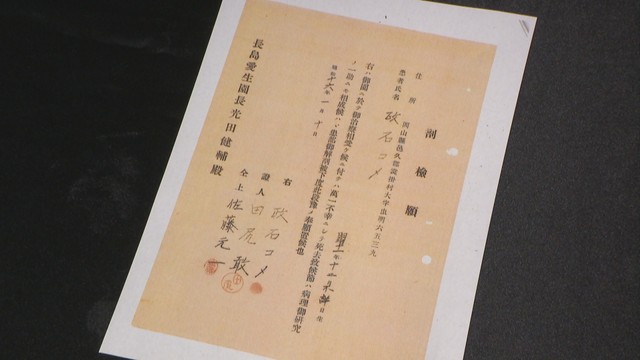 剖檢願
住所 岡山縣邑久郡裳掛村大字虫明六五三九
患者氏名 政石コメ
日生
右ハ御園ニ於テ御治療相受ケ候ニ付テハ萬一不幸ニシテ死去致候節ハ病理御研究
ノ一助ニモ相成候ハゞ患部御解剖被下度此段豫メ奉願置候也
昭和十六年一月十日
右 政石コメ
證人 田尻敢
仝上 佐藤元一
長島愛生園長光田健輔殿